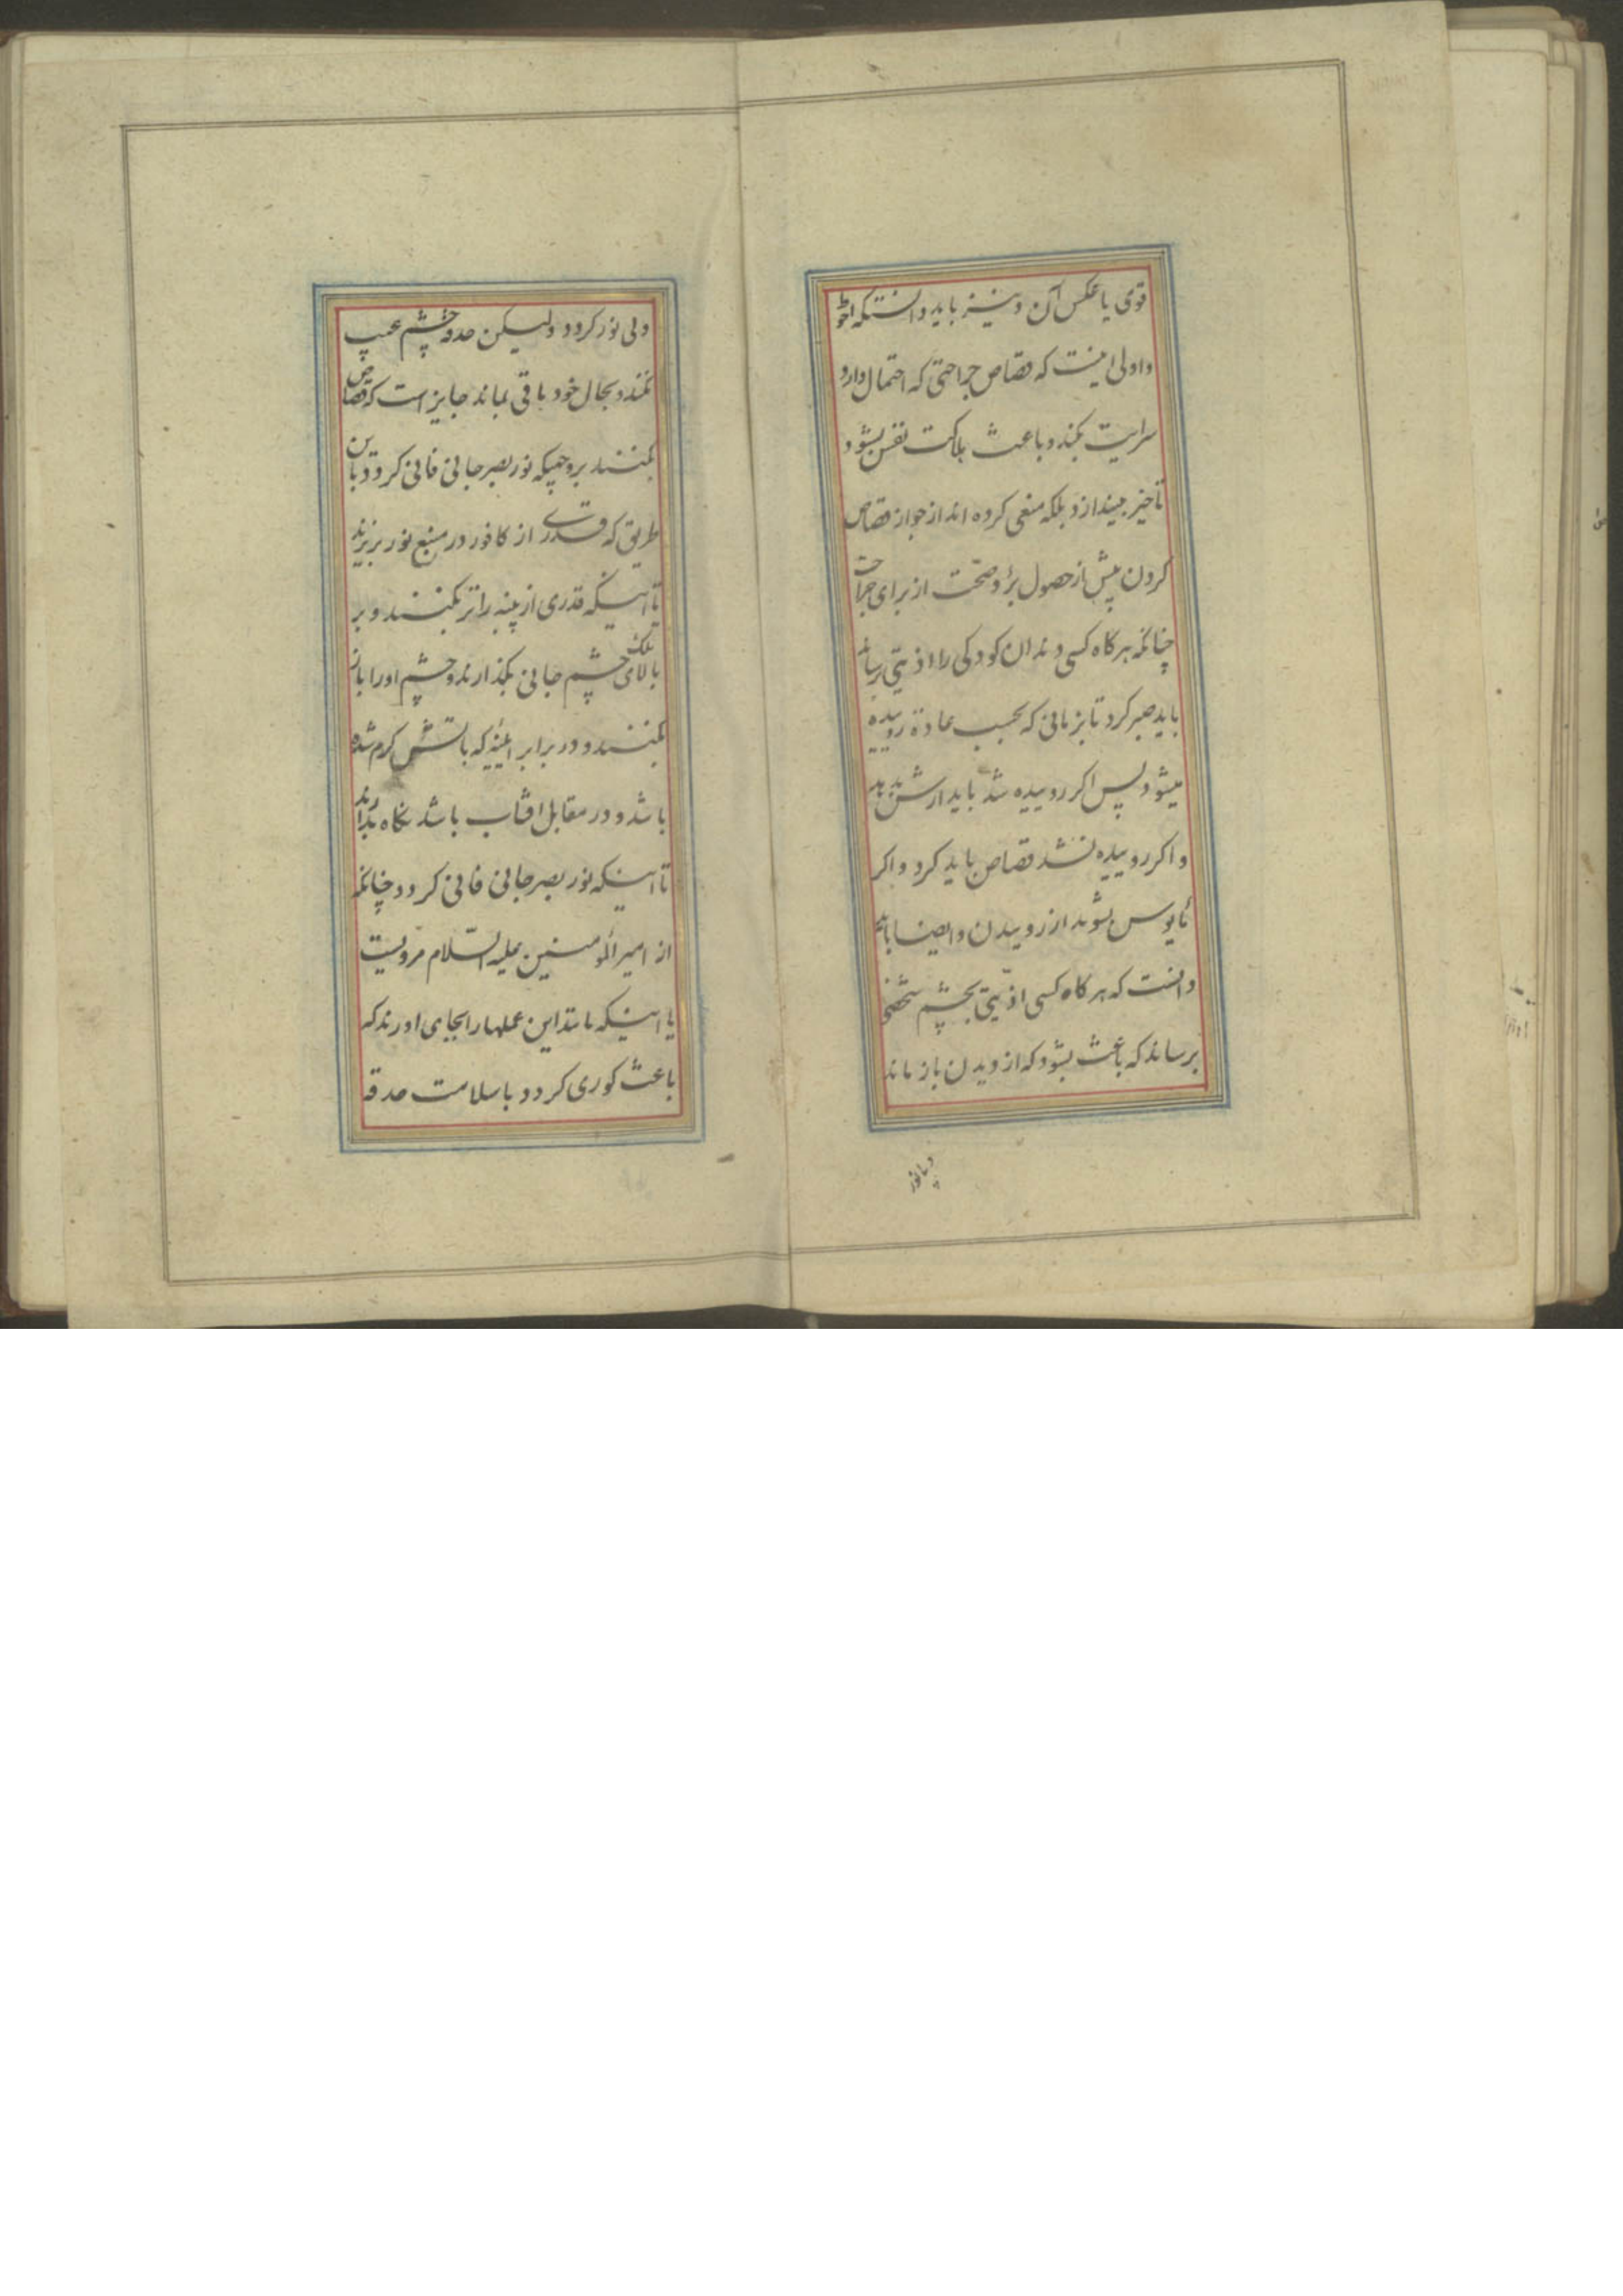 قوی یا عکس آن و نیز باید دانستکه احوط
و اولی اینست که قصاص جراحتی که احتمال دارد
سرایت بکند و باعث هلاکت نفس بشود
تأخیر بیندازد بلکه منعی کرده اند از جواز قصاص
کردن پیش از حصول برؤ و صحّت از برای جراحت
چنانکه هر کاه کسی دندان کودکی را اذیتی رساند
باید صبر کرد تا بزمانی که بحسب عادة روییده
میشود پس اکر روییده شد باید ارش بدهد
و اکر روییده نشد قصاص باید کرد و اکر
مأیوس بشوند از روییدن و ایضا باید
دانست که هر کاه کسی اذیّتی بچشم شخصی
برساند که باعث بشود که از دیدن باز ماند
و بی نور کردد ولیکن حدقه چشم عیب
نکند و بحال خود باقی بماند جایز است که قصاص
بکنند بروجهیکه نور بصر جانی فانی کردد باین
طریق که قدری از کافور در منبع نور بریزند
تا اینکه قدری از پنبه را تر بکنند و بر
بالای پلک چشم جانی بکذارند و چشم او را باز
بکنند و در برابر اینه که باتش کرم شده
باشد و در مقابل افتاب باشد نکاه بدارند
تا اینکه نور بصر جانی فانی کردد چنانکه
از امیر المومنین علیه السّلام مرویست
یا اینکه مانند این عملها را بجای اورند که
باعث کوری کردد با سلامت حدقه